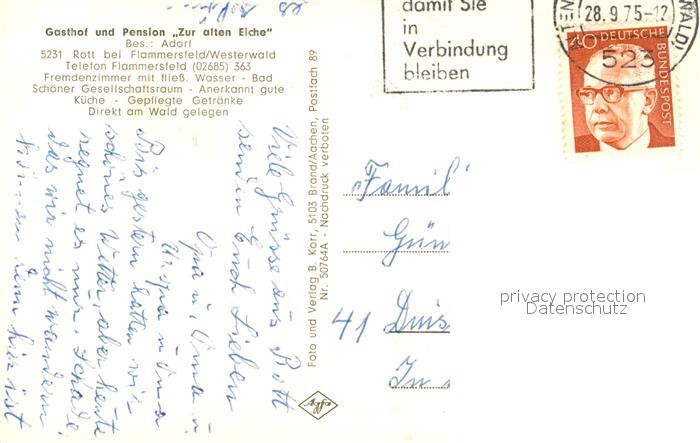 Gasthof und Pension „Zur alten Eiche"
Bes.: Adorf
5231 Rott bei Flammersfeld/Westerwald
Telefon Flammersfeld (02685) 363
Fremdenzimmer mit fließ. Wasser - Bad
Schöner Gesellschaftsraum - Anerkannt gute
Küche - Gepflegte Getränke
Direkt am Wald gelegen
Viele Grüsse aus Rott
senden Euch Lieben
Opa u. Oma u.
Uropa u Oma
Bis gestern hatten wir
schönes Wetter, aber heute
regnet es nur. Schade
das wir nicht wandern
können denn hier ist
es
Foto und Verlag B. Korr, 5103 Brand/Aachen, Postfach 89
Nr. 50764A - Nachdruck verboten
Agfa
damit Sie
in
Verbindung
bleiben
28.9.75-12
523
40 DEUTSCHE
BUNDESPOST
Famil
Gün
41 Duis
In
privacy protection
Datenschutz